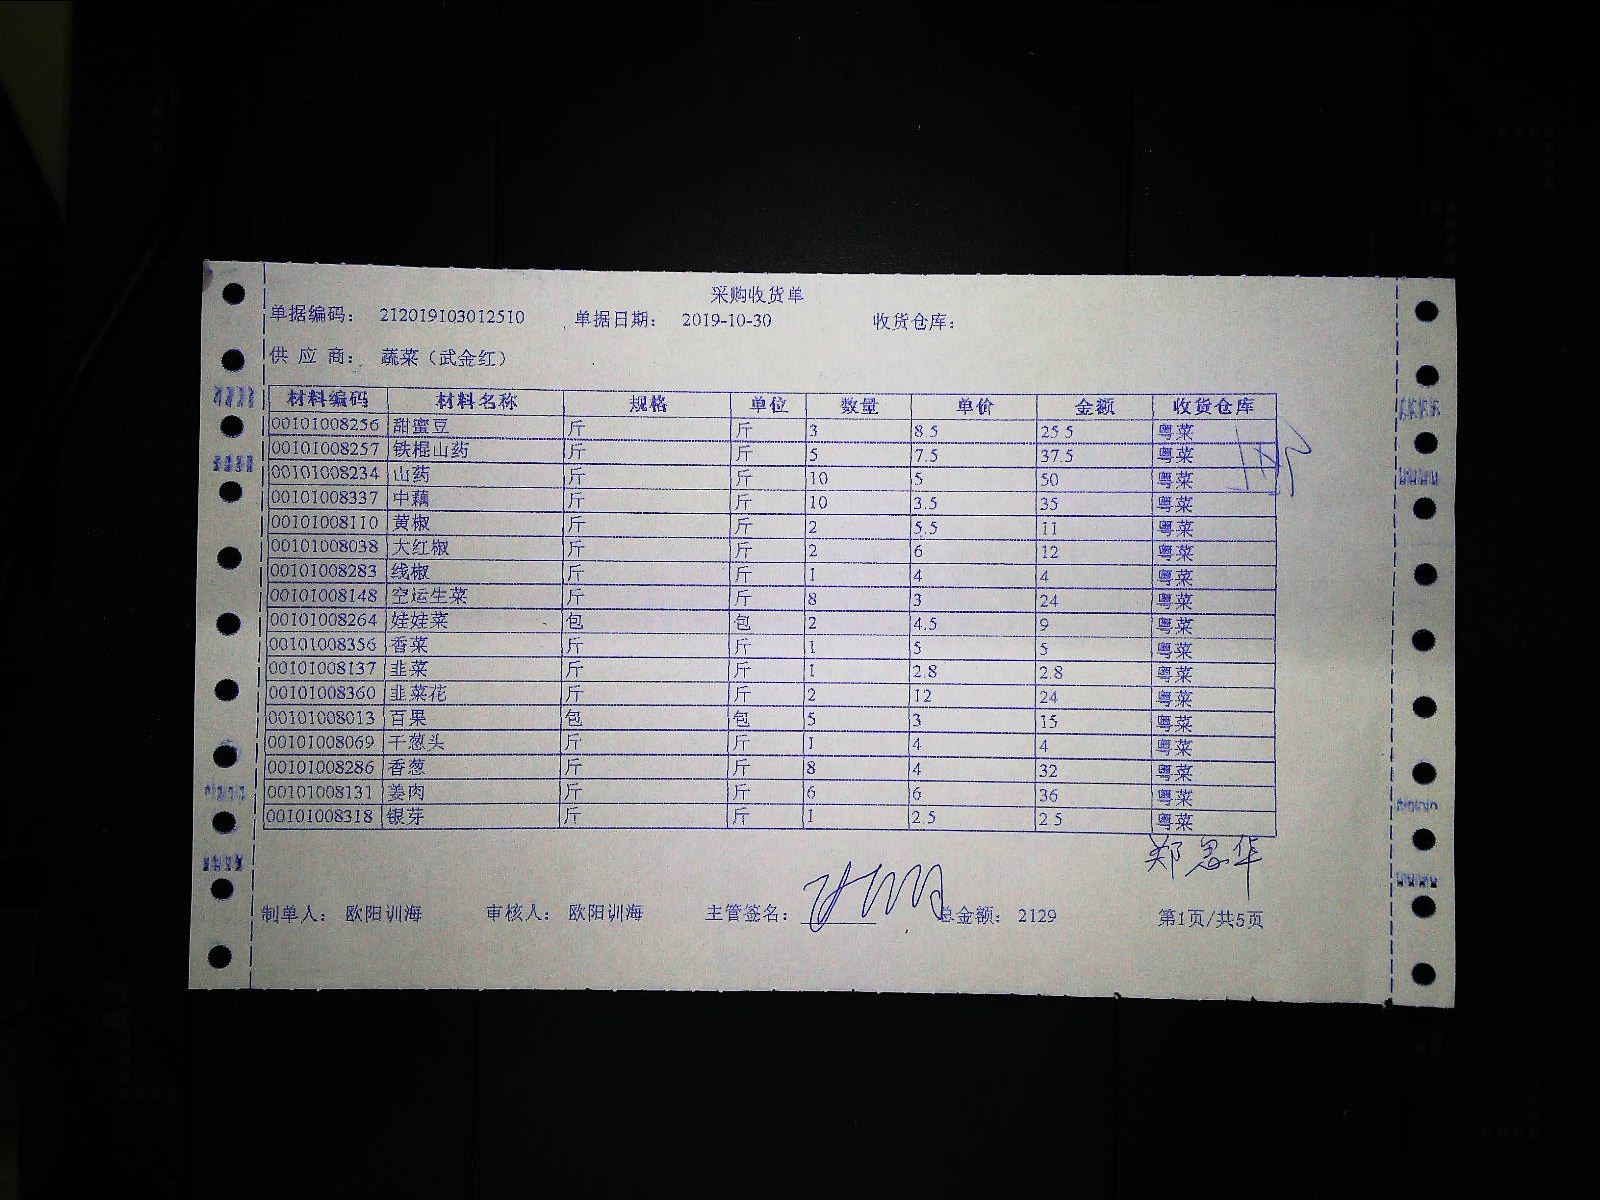 采购收货单
单据编码： 212019103012510 单据日期： 2019-10-30 收货仓库：
供 应 商： 蔬菜（武金红）
材料编码 材料名称 规格 单位 数量 单价 金额 收货仓库
00101008256 甜蜜豆 斤 斤 3 8.5 25.5 粤菜
00101008257 铁棍山药 斤 斤 5 7.5 37.5 粤菜
00101008234 山药 斤 斤 10 5 50 粤菜
00101008337 中藕 斤 斤 10 3.5 35 粤菜
00101008110 黄椒 斤 斤 2 5.5 11 粤菜
00101008038 大红椒 斤 斤 2 6 12 粤菜
00101008283 线椒 斤 斤 1 4 4 粤菜
00101008148 空运生菜 斤 斤 8 3 24 粤菜
00101008264 娃娃菜 包 包 2 4.5 9 粤菜
00101008356 香菜 斤 斤 1 5 5 粤菜
00101008137 韭菜 斤 斤 1 2.8 2.8 粤菜
00101008360 韭菜花 斤 斤 2 12 24 粤菜
00101008013 百果 包 包 5 3 15 粤菜
00101008069 干葱头 斤 斤 1 4 4 粤菜
00101008286 香葱 斤 斤 8 4 32 粤菜
00101008131 姜肉 斤 斤 6 6 36 粤菜
00101008318 银芽 斤 斤 1 2.5 2.5 粤菜
郑思华
制单人： 欧阳训海 审核人： 欧阳训海 主管签名： 总金额： 2129 第1页/共5页